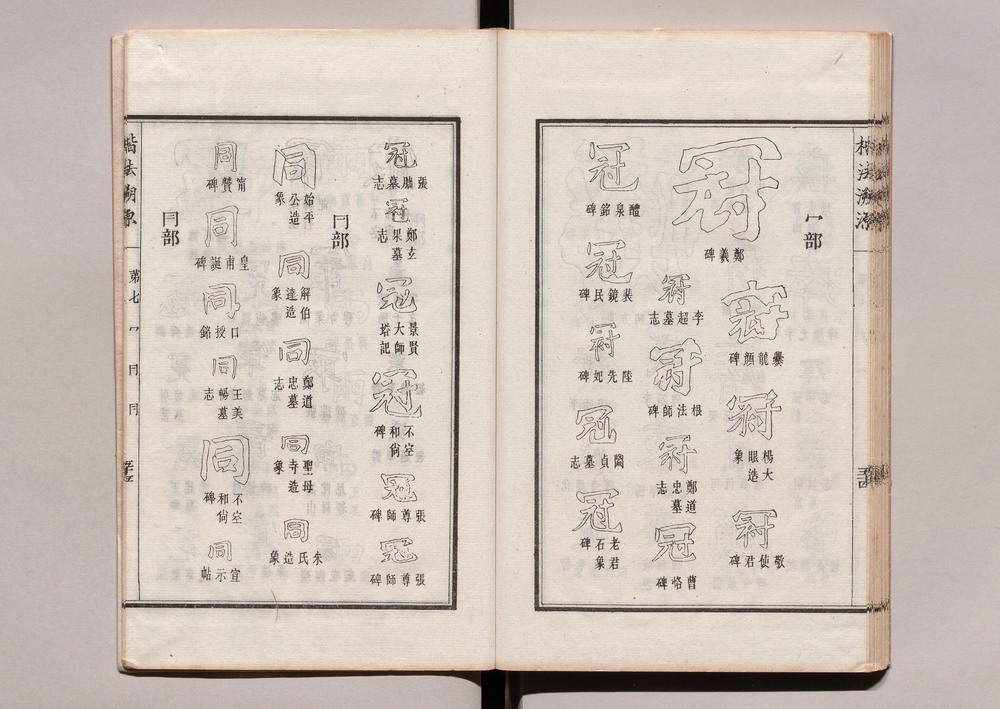 楷法溯源
冖部
冠
鄭羲碑
冠
爨龍顏碑
冠
楊大眼造象
冠
敬使君碑
冠
李超墓志
冠
根法師碑
冠
鄭道忠墓志
冠
曹恪碑
冠
醴泉銘碑
冠
裴鏡民碑
冠
陸先妃碑
冠
閻貞墓志
冠
老君石象
冠
張墓志
冠
鄭玄果墓志
冠
景賢大師塔記
冠
不空和尚碑
冠
張尊師碑
冠
張尊師碑
冃部
同
始平公造象
同
解伯達造象
同
鄭道忠墓志
同
聖母寺造象
同
朱氏造象
同
甯贊碑
同
皇甫誕碑
同
口授銘
同
王美暢墓志
同
不空和尚碑
同
宣示帖
冃部
楷法溯源
第七
冖
冃
冃